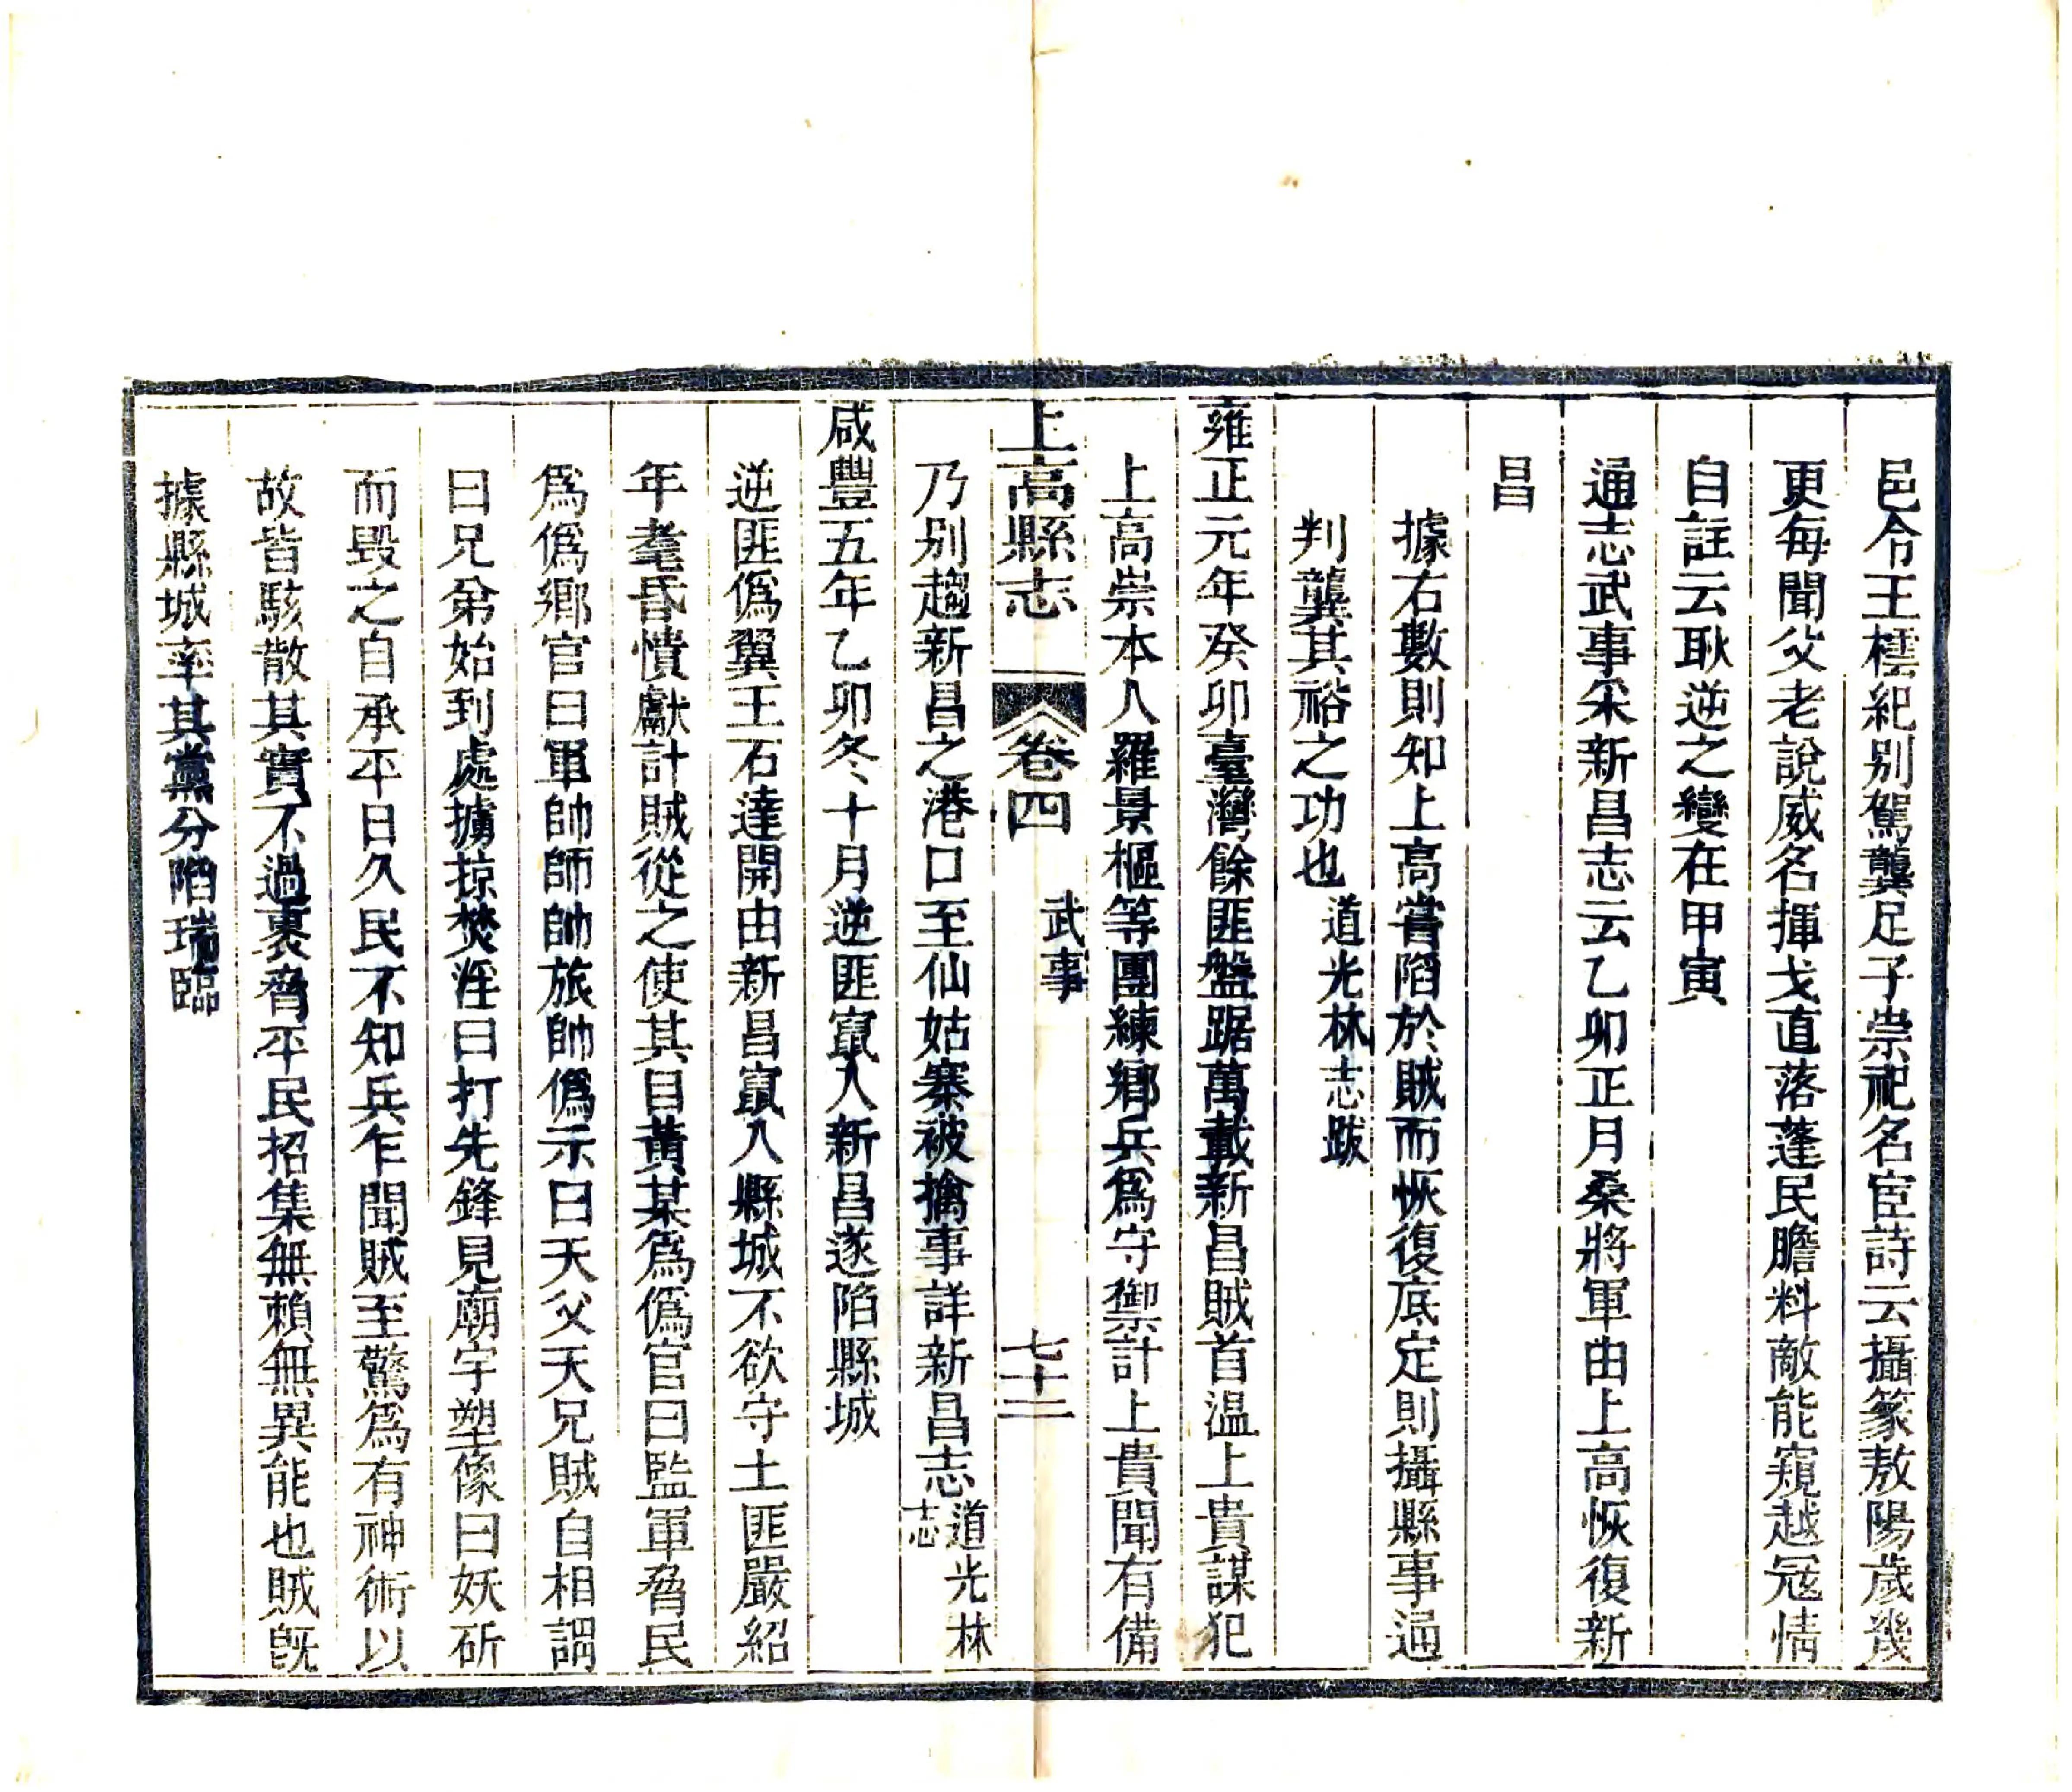 邑令王橒紀别駕龔足子崇祀名宦詩云攝篆敖陽歲幾
更每聞父老說威名揮戈直落蓬民膽料敵能窺越冦情
自註云耿逆之變在甲寅
通志武事朱新昌志云乙卯正月桑將軍由上高恢復新
昌
據右數則知上高嘗陷於賊而恢復底定則攝縣事通
判龔其裕之功也道光林志跋
雍正元年癸卯臺灣餘匪盤踞萬載新昌賊首温上貴謀犯
上高崇本人羅景樞等團練鄉兵爲守禦計上貴聞有備
上高縣志 卷四 武事 七十二
乃别趨新昌之港口至仙姑寨被擒事詳新昌志道光林志
咸豐五年乙卯冬十月逆匪竄入新昌遂陷縣城
逆匪僞翼王石達開由新昌竄入縣城不欲守土匪嚴紹
年耄昏憒獻計賊從之使其目黃某爲僞官曰監軍脅民
爲僞鄉官曰軍帥師帥旅帥僞示曰天父天兄賊自相謂
曰兄弟始到處擄掠焚淫曰打先鋒見廟宇塑像曰妖斫
而毀之自承平日久民不知兵乍聞賊至驚爲有神術以
故皆駭散其實不過裹脅平民招集無賴無異能也賊旣
據縣城率其黨分陷瑞臨